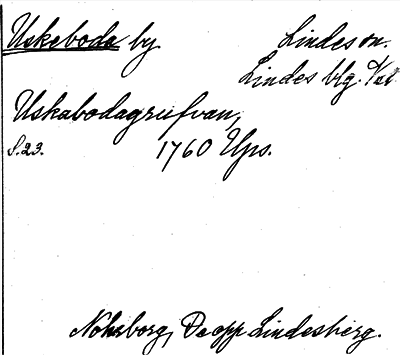 Uskeboda by. Lindes sn.
Lindes blg. Vstl
Uskabodagrufvan,
S. 23. 1760 Ups.
Nohrborg, De opp Lindesberg.